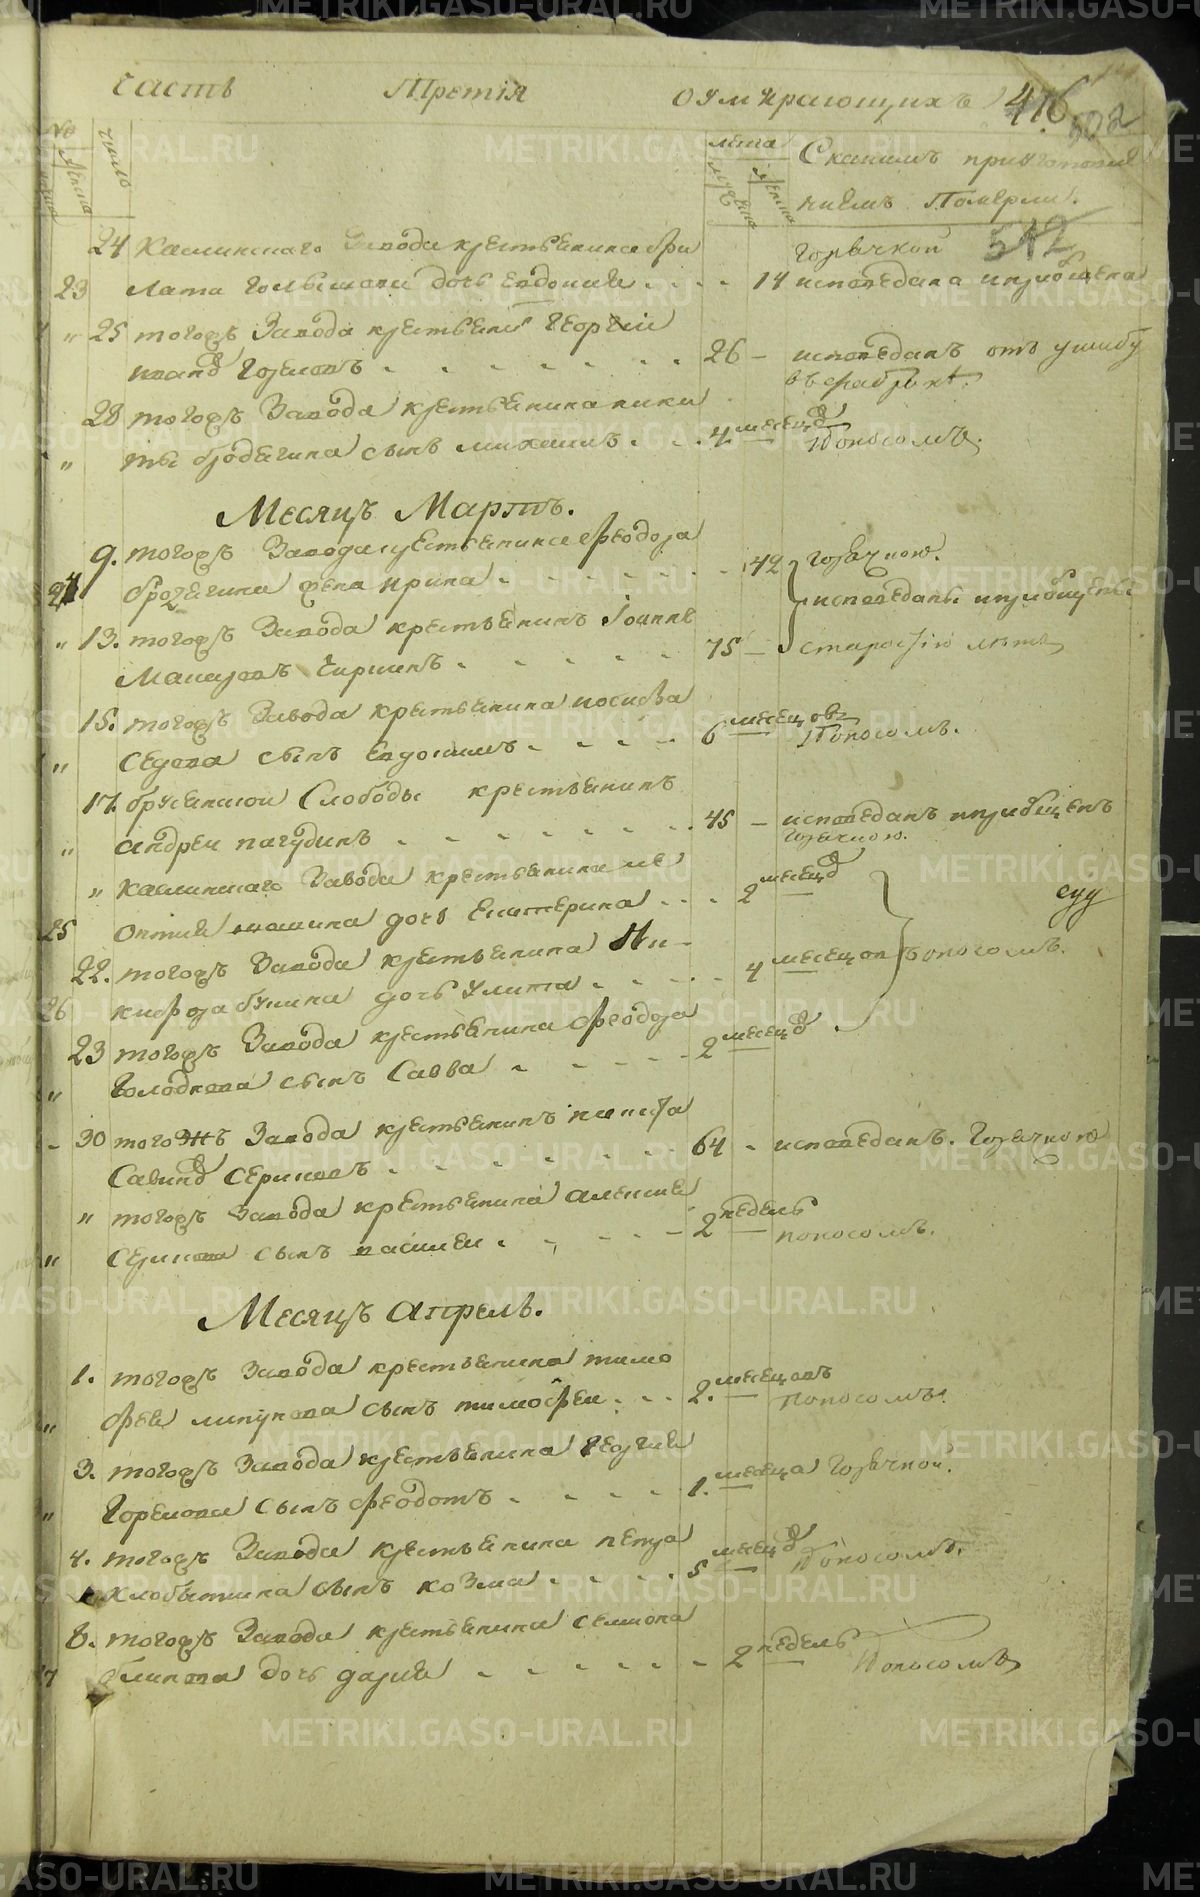 METRIKI.GASO-URAL.RU
часть Третія оумирающихъ 476
502
число
лета
Скакимъ приуготовле
ниемъ Померли.
512
24 Каслинскаго Завода крестьянина фи
горячкой
23 лата Голышова дочь Евдокия 14 исповедана и приобщена
" 25 тогожъ Завода крестьянинъ Георгий
иванов Горелов 26 исповеданъ отъ ушибу
28 тогожъ Завода крестьянина ники
" ты бродягина сынъ михаилъ 4 месецов Поносомъ.
Месяцъ Мартъ.
9. тогожъ Завода крестьянина феодора
24 бродягина жена ирина 42 горячкою.
исповеданы и приобщены
" 13. тогожъ Завода крестьянинъ Іоанн
Макаровъ Киршинъ 75 старостію летъ
15. тогожъ Завода крестьянина иосифа
" Седова сынъ Евдокимъ 6 месецовъ Поносомъ.
17. брусянской Слободы крестьянинъ
" андреи пагудинъ 45 исповеданъ и приобщенъ
горячкою.
" Каслинскаго Завода крестьянина ле
25 онтия дочь Екатерина 2 месецов
22. тогожъ Завода крестьянина Ни
26 кифора булина дочь Улита 4 месецов поносомъ.
23 тогожъ Завода крестьянина феодора
" Голоднова сынъ Савва 2 месецов
30 тогожъ Завода крестьянинъ никифа
Савинов Сериковъ 64 исповеданъ. Горячкою
" тогожъ Завода крестьянина алексия
" Серикова сынъ василеи 2 неделъ поносомъ.
Месяцъ апрель.
1. тогожъ Завода крестьянина тимо
" феи липунова сынъ тимофеи 2. месецовъ поносомъ.
3. тогожъ Завода крестьянина Георгия
" Горелова сынъ феодотъ 1. месеца горячкой.
4. тогожъ Завода крестьянина петра
Хлобыстина сынъ козма 5 месецов Поносомъ.
8. тогожъ Завода крестьянина семиона
27 блинова дочь дария 2 неделъ Поносомъ